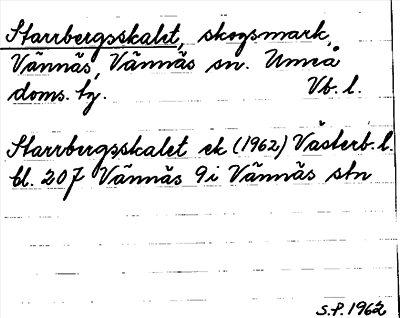 Starrbergsskalet, skogsmark,
Vännäs, Vännäs sn. Umeå
doms. tg. Vb. l.
Starrbergsskalet ek (1962) Västerb. l.
bl. 207 Vännäs 9 i Vännäs stn
S.P. 1962